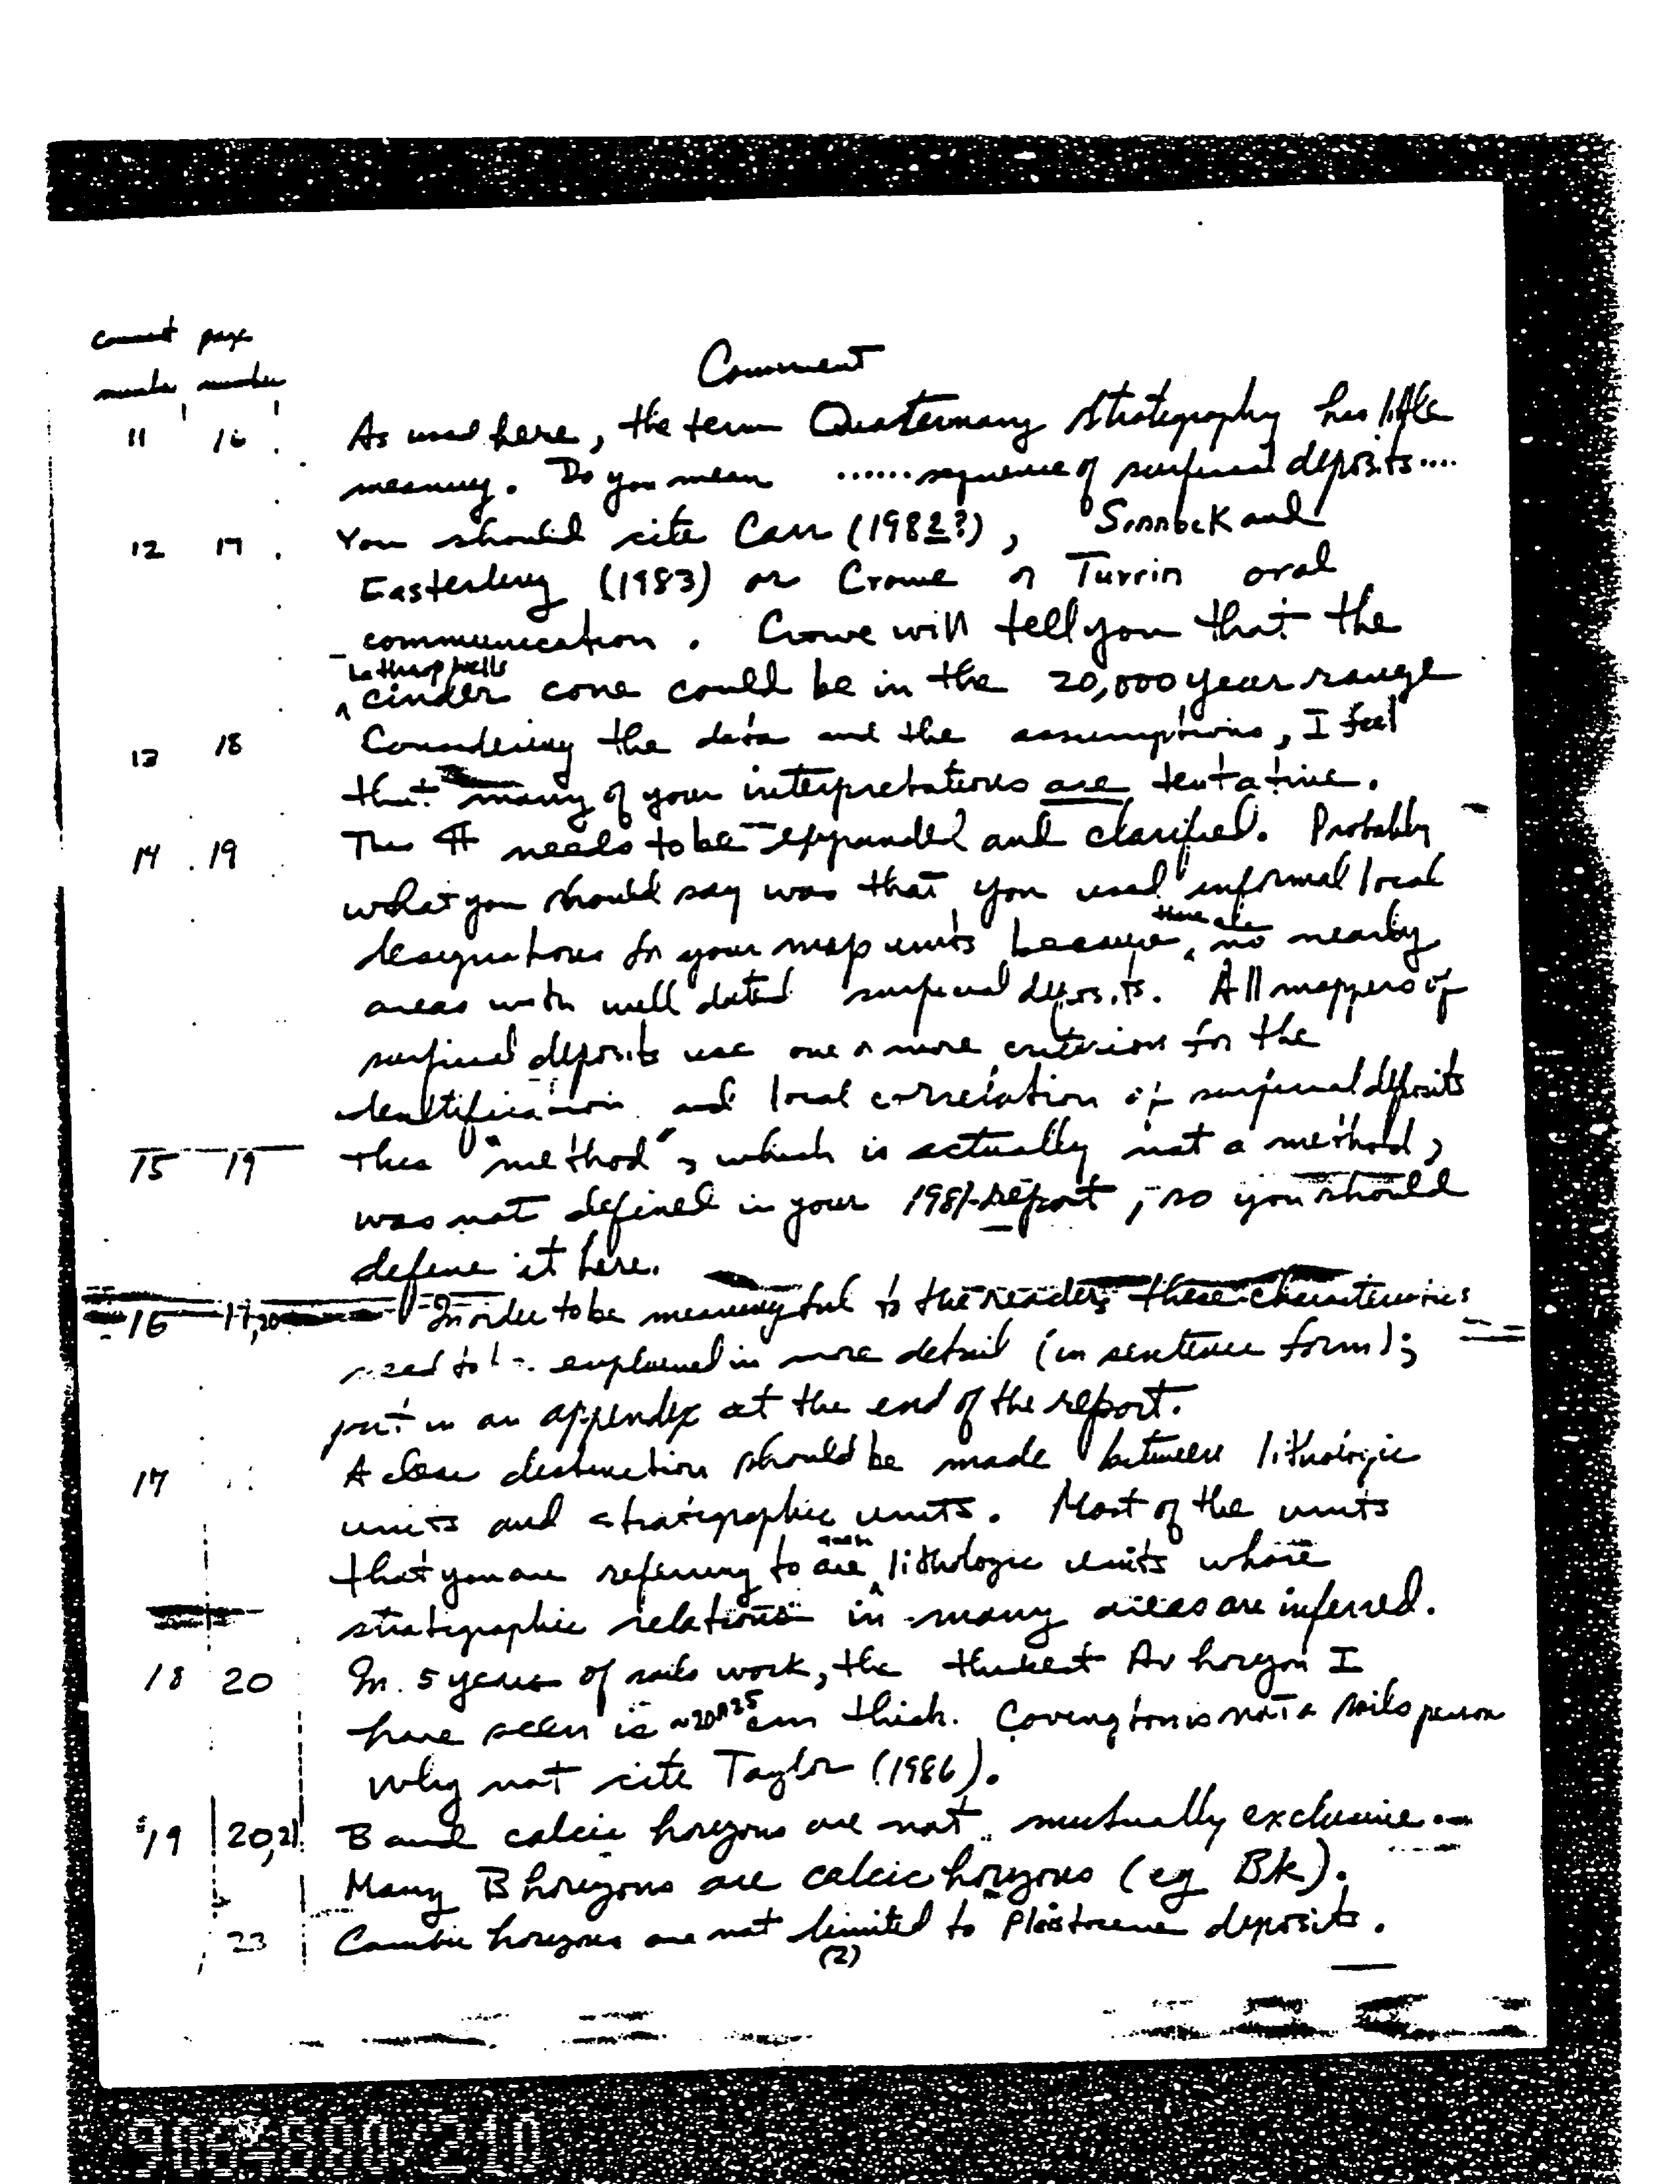 comment page
number number
Comment
11 16 As used here, the term Quaternary stratigraphy has little
meaning. Do you mean ...... sequence of surficial deposits....
12 17 You should cite Carr (1982?), Sinnock and
Easterling (1983) or Crowe or Turrin oral
communication. Crowe will tell you that the
Lathrop Wells
cinder cone could be in the 20,000 year range
13 18 Considering the data and the assumptions, I feel
that many of your interpretations are tentative.
14 19 This ¶ needs to be expanded and clarified. Probably
what you should say was that you used informal local
there are
designations for your map units because no nearby
areas with well dated surficial deposits. All mappers of
surficial deposits use one or more criterion for the
identification and local correlation of surficial deposits
15 19 This "method", which is actually not a method,
was not defined in your 1981 report, so you should
define it here.
16 In order to be meaningful to the reader, these characteristics
need to be explained in more detail (in sentence form);
put in an appendix at the end of the report.
17 A clear distinction should be made between lithologic
units and stratigraphic units. Most of the units
that you are referring to are lithologic units whose
stratigraphic relations in many areas are inferred.
18 20 In 5 years of soils work, the thickest Av horizon I
have seen is ~20 cm thick. Covington is not a soils person
Why not cite Taylor (1986).
19 20,21 B and calcic horizons are not mutually exclusive.
Many B horizons are calcic horizons (eg Bk).
23 Cambic horizons are not limited to Pleistocene deposits.
(2)